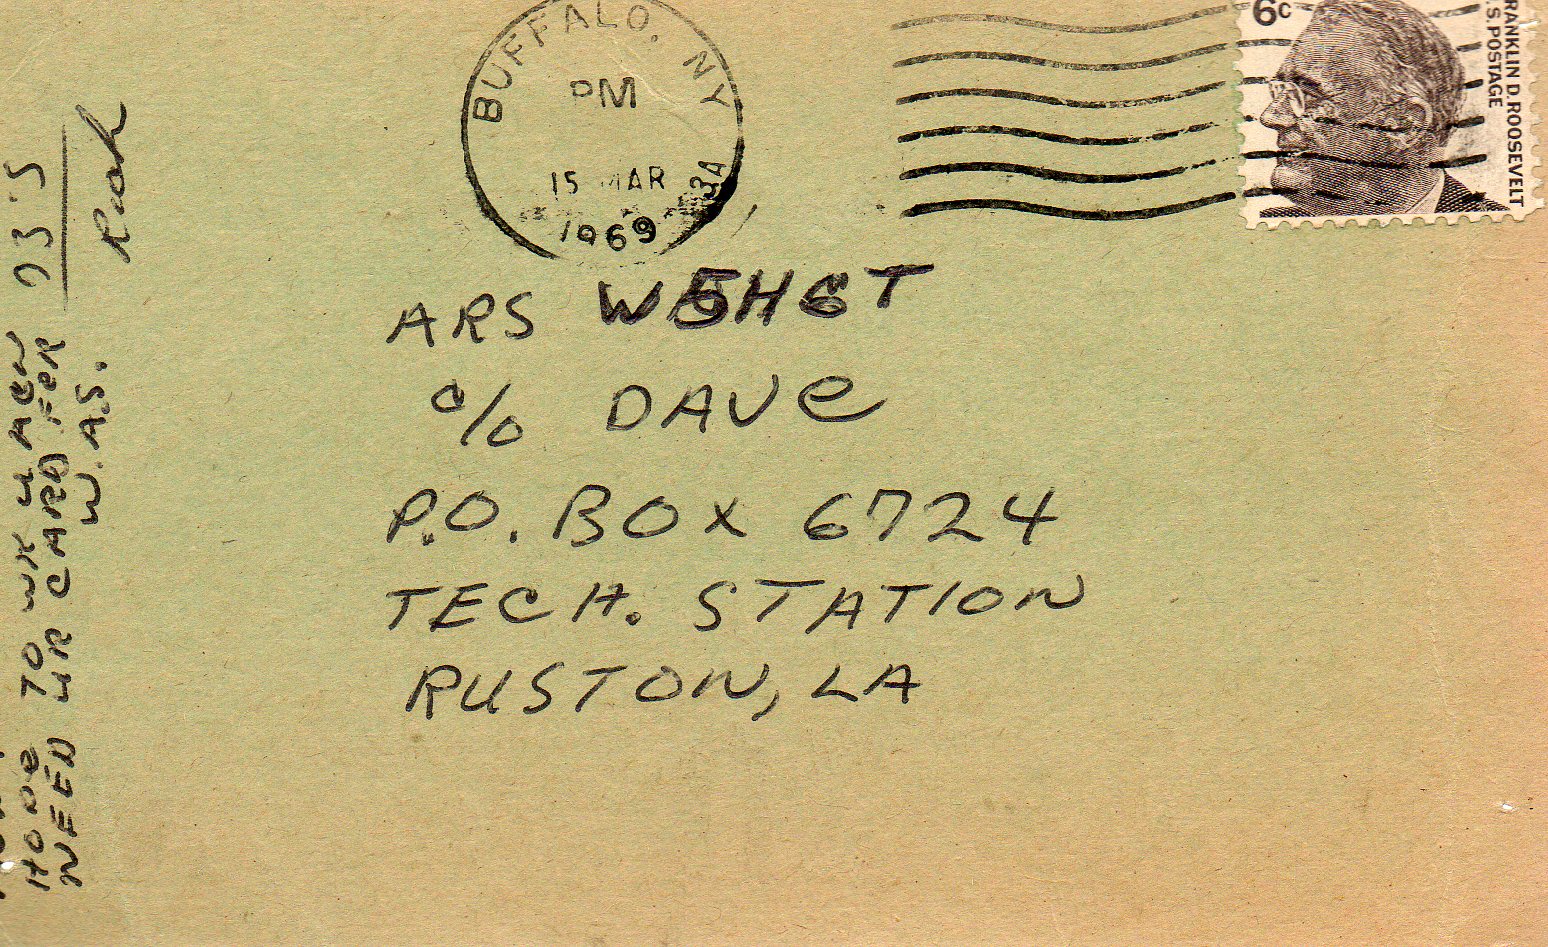 BUFFALO, NY
PM
15 MAR
1969
3A
6c
FRANKLIN D. ROOSEVELT
U.S. POSTAGE
ARS W5HGT
c/o DAVE
P.O. BOX 6724
TECH. STATION
RUSTON, LA
HOPE TO WK U AGN
NEED UR CARD FOR
W.A.S.
73'S